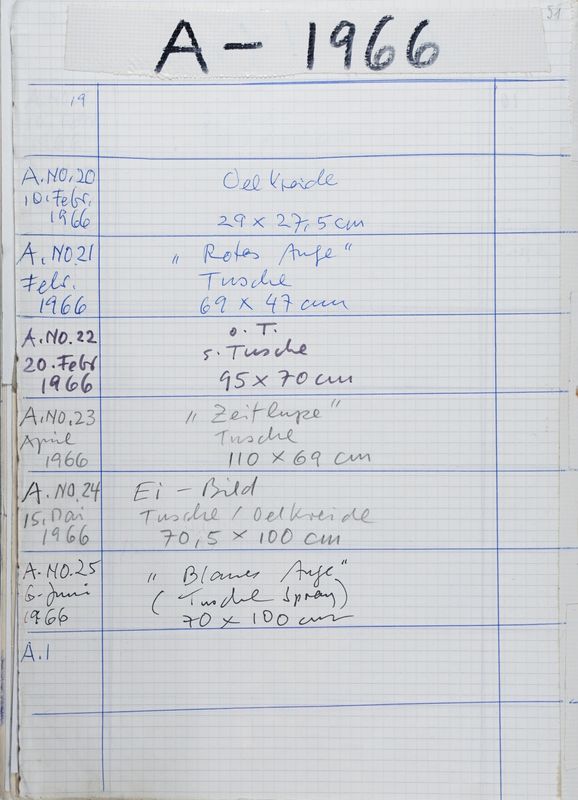 51
A - 1966
19
A.NO.20
10.Febr.
1966
Oelkreide
29 x 27,5 cm
A.NO.21
Febr.
1966
„ Rotes Auge "
Tusche
69 x 47 cm
A.NO.22
20.Febr
1966
o. T.
s. Tusche
95 x 70 cm
A.NO.23
April
1966
„ Zeitlupe "
Tusche
110 x 69 cm
A.NO.24
15.Mai
1966
Ei - Bild
Tusche / Oelkreide
70,5 x 100 cm
A.NO.25
6.Juni
1966
„ Blaues Auge "
( Tusche Spray )
70 x 100 cm
A.1